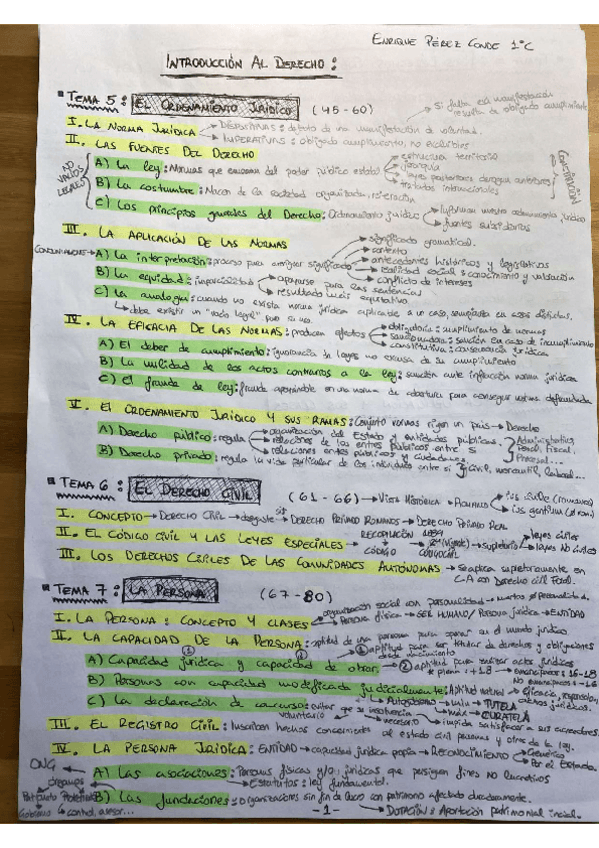 ENRIQUE PÉREZ CONDE 1ºC
INTRODUCCIÓN AL DERECHO:
TEMA 5: EL ORDENAMIENTO JURÍDICO (45-60)
Si falta esa manifestación
resulta de obligado cumplimiento
I. LA NORMA JURÍDICA → DISPOSITIVAS: defecto de una manifestación de voluntad.
IMPERATIVAS: obligado cumplimiento, no excluibles
II. LAS FUENTES DEL DERECHO
NO VALIOS LEGALES
A) La ley: Normas que emanan del poder público estatal
estructura territorio
jerarquía
leyes posteriores derogan anteriores
tratados internacionales
CONSTITUCIÓN
B) La costumbre: Nacen de la sociedad organizada, reiteración
C) Los principios generales del Derecho: Ordenamiento jurídico
Informan nuestro ordenamiento jurídico
fuentes subsidiarias
III. LA APLICACIÓN DE LAS NORMAS
A) La interpretación: proceso para averiguar significado
significado gramatical.
contexto
antecedentes históricos y legislativos
realidad social: conocimiento y valoración
conflicto de intereses
B) La equidad: imparcialidad
apoyarse para las sentencias
resultado más equitativo
C) La analogía: cuando no exista norma jurídica aplicable a un caso, semejanza en casos distintos.
debe existir un "vacío legal" puro
IV. LA EFICACIA DE LAS NORMAS: producen efectos
obligatoria: cumplimiento de normas
sancionadora: sanción en caso de incumplimiento
constitutiva: consecuencia jurídica
A) El deber de cumplimiento: ignorancia de leyes no excusa de su cumplimiento
B) La nulidad de los actos contrarios a la ley: sanción ante infracción norma jurídica
C) El fraude de ley: fraude apoyándose en una norma de cobertura para conseguir norma defraudada
V. El ORDENAMIENTO JURÍDICO Y SUS "RAMAS: Conjunto normas rigen un país → Derecho
A) Derecho público: regula
organización del Estado y entidades públicas.
relaciones de los entes públicos entre sí
relaciones entre públicos y ciudadanos
Administrativo,
Penal, Fiscal,
Procesal...
B) Derecho privado: regula la vida particular de los individuos entre sí } Civil, mercantil, laboral...
TEMA 6: EL DERECHO CIVIL (61-66) → VISTA HISTÓRICA → ROMANOS
ius civile (romanos)
ius gentium
I. CONCEPTO → DERECHO CIVIL → DERECHO PRIVADO ROMANOS → DERECHO PRIVADO REAL
II. EL CÓDIGO CIVIL Y LAS LEYES ESPECIALES
RECOPILACIÓN
+
CÓDIGO
1889 (vigente)
CÓDIGO CIVIL
supletorio
leyes civiles
leyes NO civiles
III. LOS DERECHOS CIVILES DE LAS COMUNIDADES AUTÓNOMAS → Se aplica supletoriamente en
C.A con Derecho civil Foral.
TEMA 7: LA PERSONA (67-80)
organización social con personalidad
I. LA PERSONA: CONCEPTO Y CLASES
Persona física → SER HUMANO / Persona jurídica → ENTIDAD
II. LA CAPACIDAD DE LA PERSONA: aptitud de una persona para operar en el mundo jurídico.
aptitud para ser titular de derechos y obligaciones
desde nacimiento
A) Capacidad jurídica y capacidad de obrar
aptitud para realizar actos jurídicos
plena: +18
emancipados: 16-18
No emancipados: -18
B) Personas con capacidad modificada judicialmente: Aptitud natural
Eficacia,
actos jurídicos.
TUTELA
CURATELA
C) La declaración de concurso: evitar que su insolvencia impida satisfacer a sus acreedores.
voluntario
necesario
III. EL REGISTRO CIVIL: Inscriben hechos concernientes al estado civil personas y otros de la ley.
IV. LA PERSONA JURÍDICA: ENTIDAD → capacidad jurídica propia → RECONOCIMIENTO
Genérico
Por el Estado.
ONG
A) Las asociaciones: Personas físicas y/o jurídicas que persiguen fines NO lucrativos
Estatutos: ley fundamental.
órganos
Patronato
Gobierno
control, asesor...
B) Las fundaciones: organizaciones sin fin de lucro con patrimonio afectado duraderamente.
DOTACIÓN: Aportación patrimonial inicial.
-1-